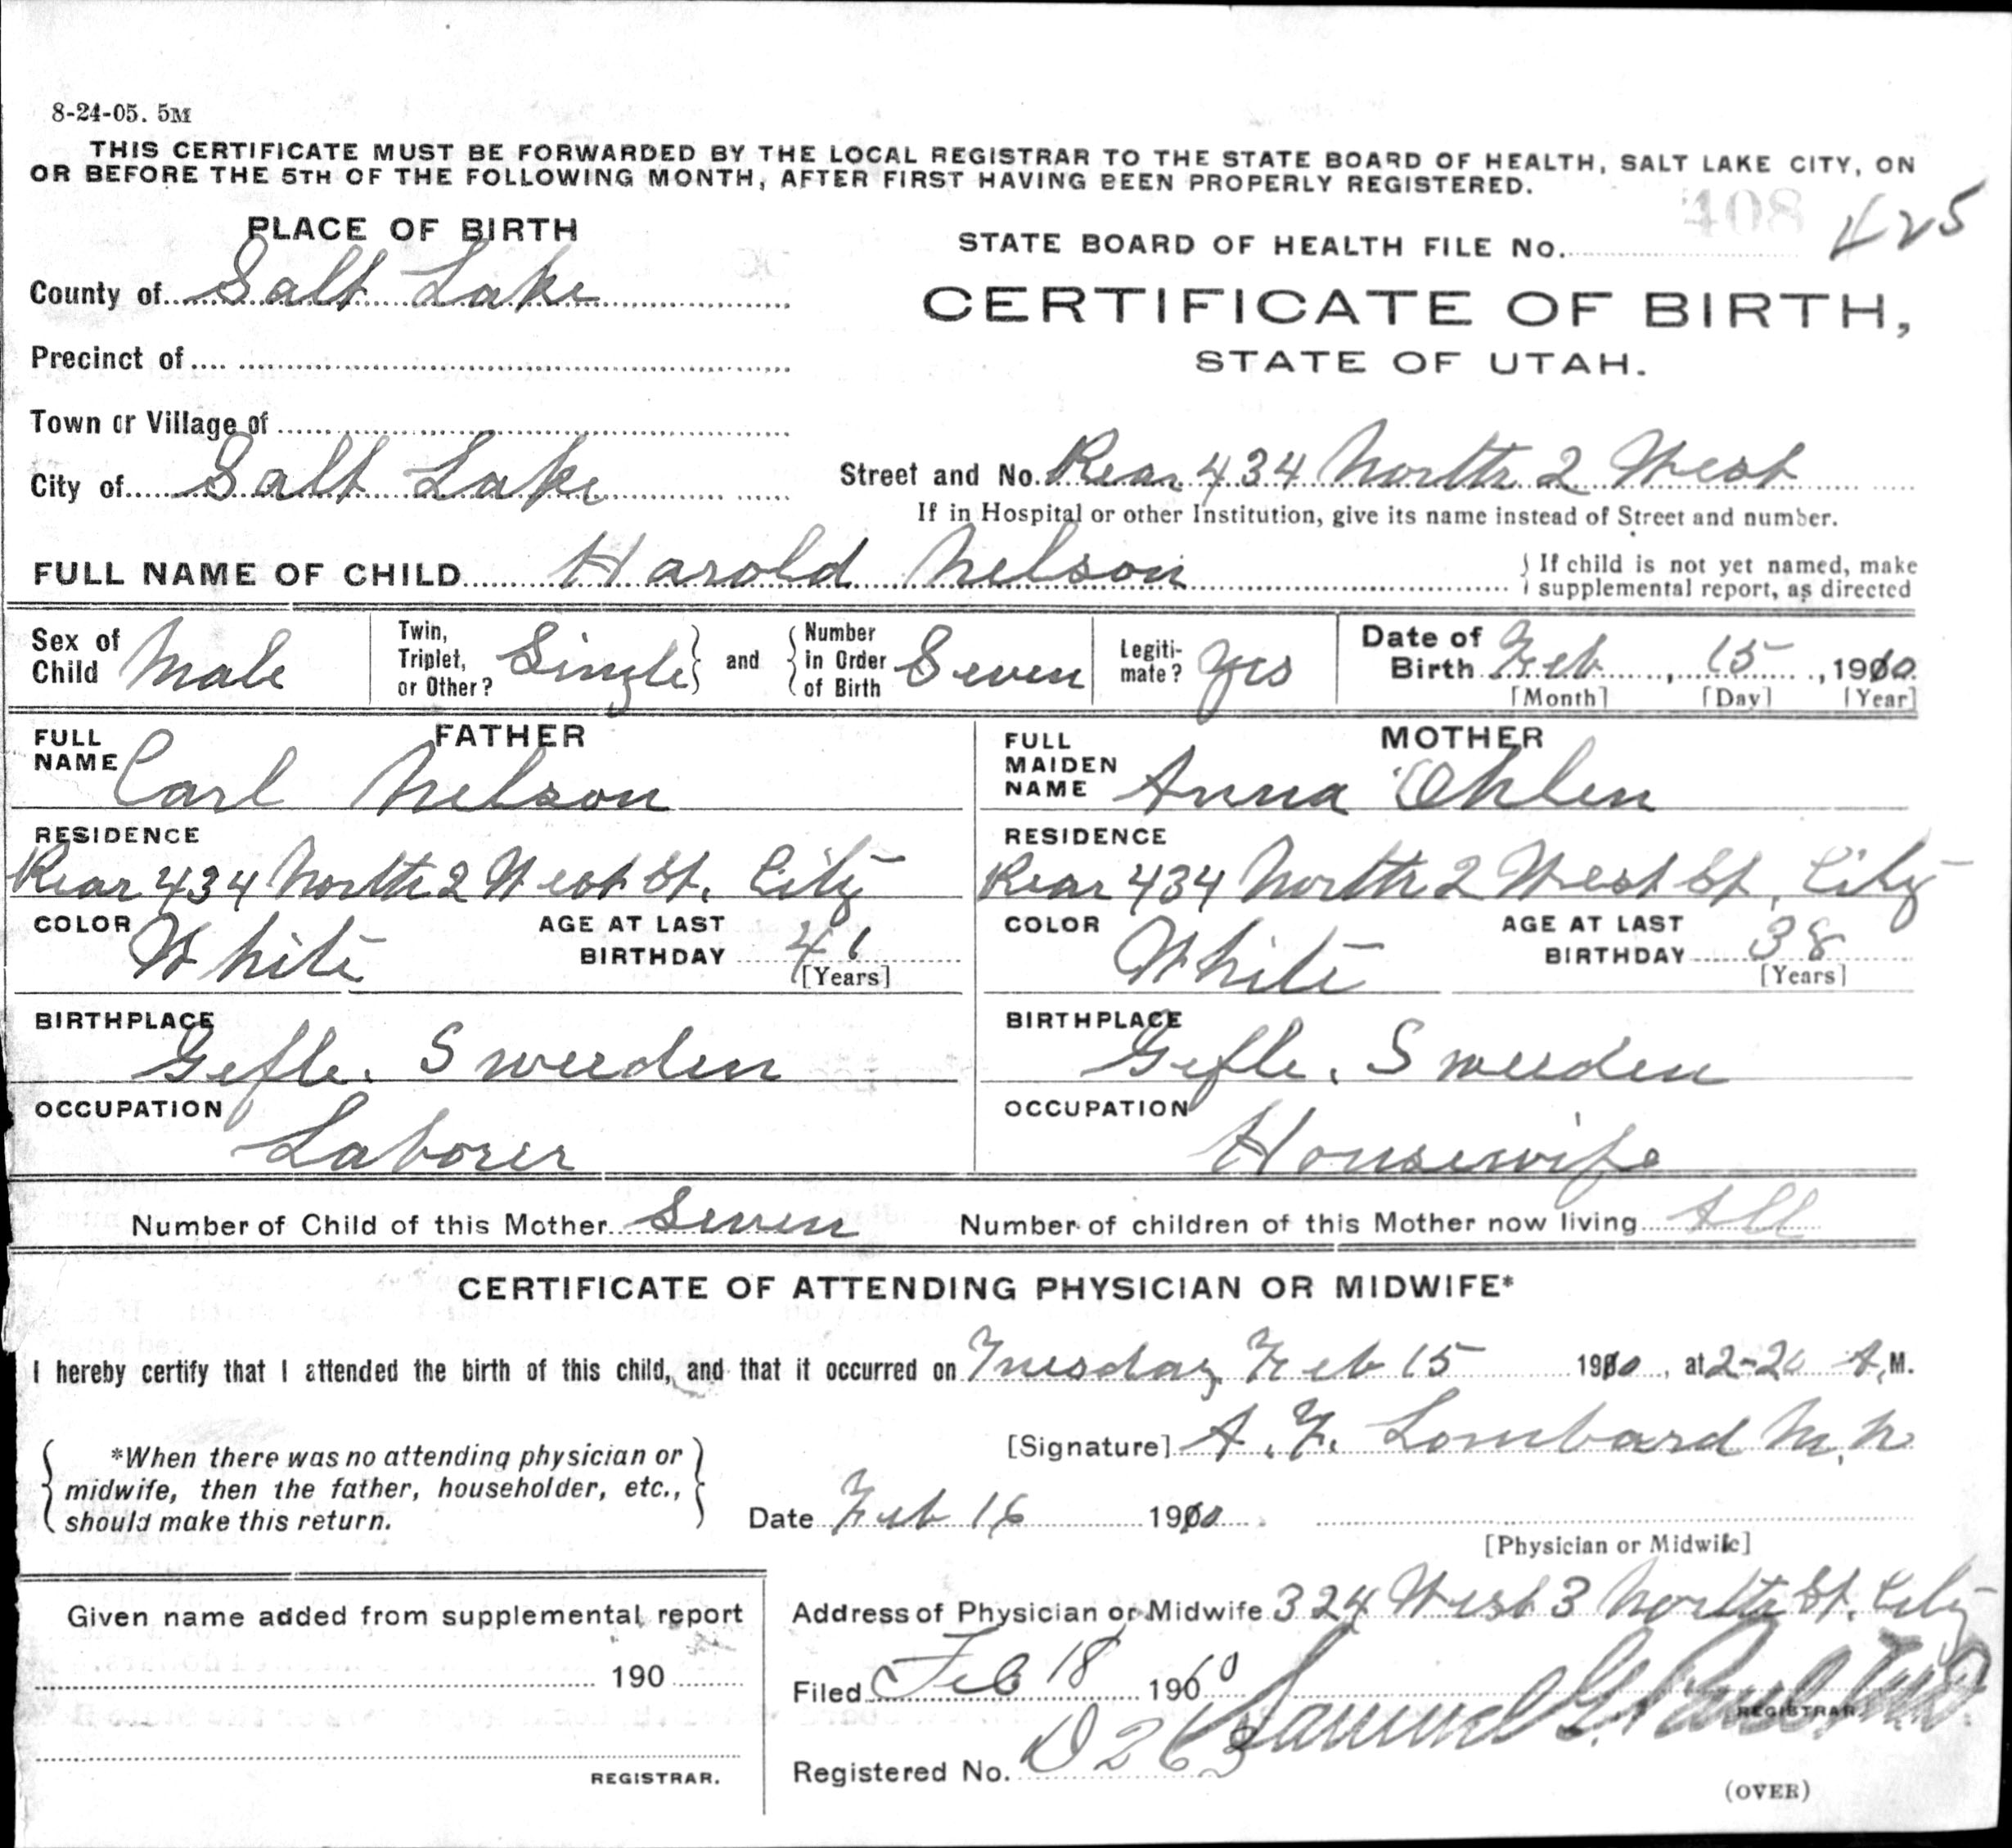 8-24-05. 5M
THIS CERTIFICATE MUST BE FORWARDED BY THE LOCAL REGISTRAR TO THE STATE BOARD OF HEALTH, SALT LAKE CITY, ON
OR BEFORE THE 5TH OF THE FOLLOWING MONTH, AFTER FIRST HAVING BEEN PROPERLY REGISTERED.
PLACE OF BIRTH
STATE BOARD OF HEALTH FILE No. 408 425
County of Salt Lake
CERTIFICATE OF BIRTH,
STATE OF UTAH.
Precinct of
Town or Village of
City of Salt Lake
Street and No. Rear 434 North 2 West
If in Hospital or other Institution, give its name instead of Street and number.
FULL NAME OF CHILD Harold Nelson
If child is not yet named, make
supplemental report, as directed
Sex of Child Male
Twin, Triplet, or Other? Single and Number in Order of Birth Seven
Legitimate? Yes
Date of Birth Feb, 15, 1910
[Month] [Day] [Year]
FATHER
FULL NAME Carl Nelson
RESIDENCE
Rear 434 North 2 West St. City
COLOR White AGE AT LAST BIRTHDAY 41
[Years]
BIRTHPLACE
Gefle. Sweeden
OCCUPATION
Laborer
MOTHER
FULL MAIDEN NAME Anna Ohlen
RESIDENCE
Rear 434 North 2 West St, City
COLOR White AGE AT LAST BIRTHDAY 38
[Years]
BIRTHPLACE
Gefle, Sweeden
OCCUPATION
Housewife
Number of Child of this Mother Seven Number of children of this Mother now living All
CERTIFICATE OF ATTENDING PHYSICIAN OR MIDWIFE*
I hereby certify that I attended the birth of this child, and that it occurred on Tuesday Feb 15 1910, at A.M.
[Signature] A. F. Lombard
*When there was no attending physician or
midwife, then the father, householder, etc.,
should make this return.
Date Feb 16 1910
[Physician or Midwife]
Given name added from supplemental report
190
REGISTRAR.
Address of Physician or Midwife 324 West 3 North St. City
Filed Feb 18 1910
Samuel G. Paul
REGISTRAR.
Registered No. D 263
(OVER)